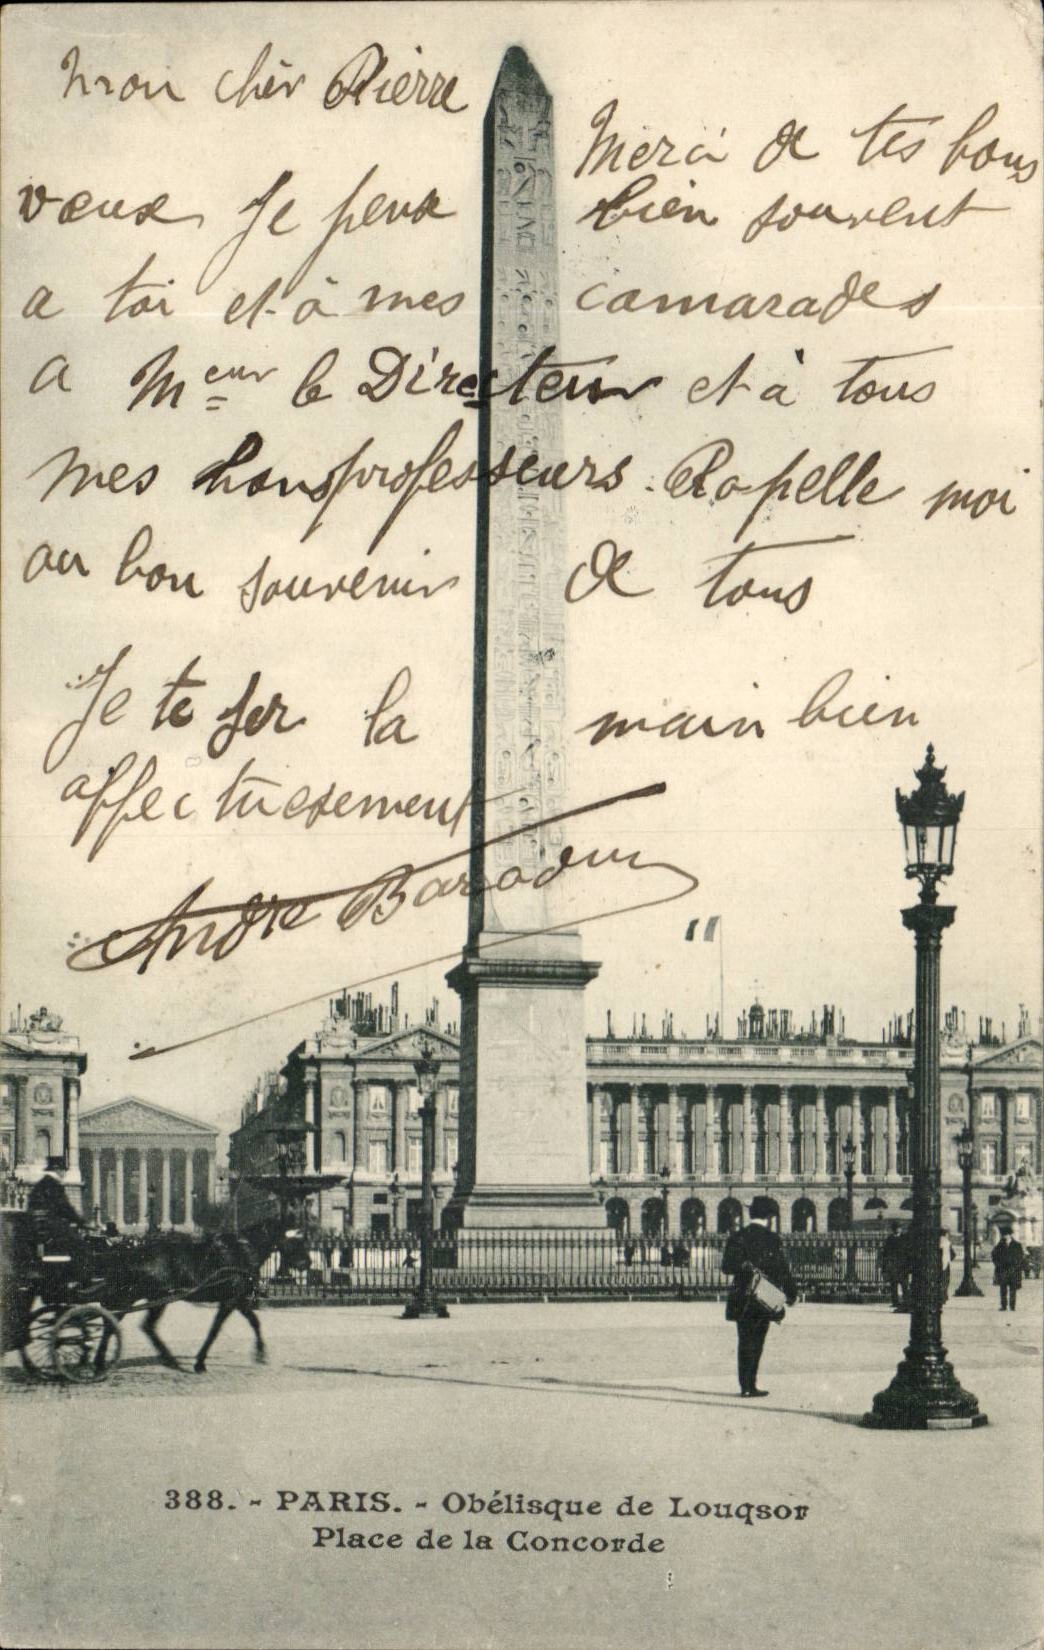 Mon cher Pierre
Merci de tes bons
vœux Je pense bien souvent
a toi et à mes camarades
a Meur le Directeur et à tous
mes bons professeurs. Rapelle moi
au bon souvenir de tous
Je te ser la main bien
affectuesement
André
388. - PARIS. - Obélisque de Louqsor
Place de la Concorde